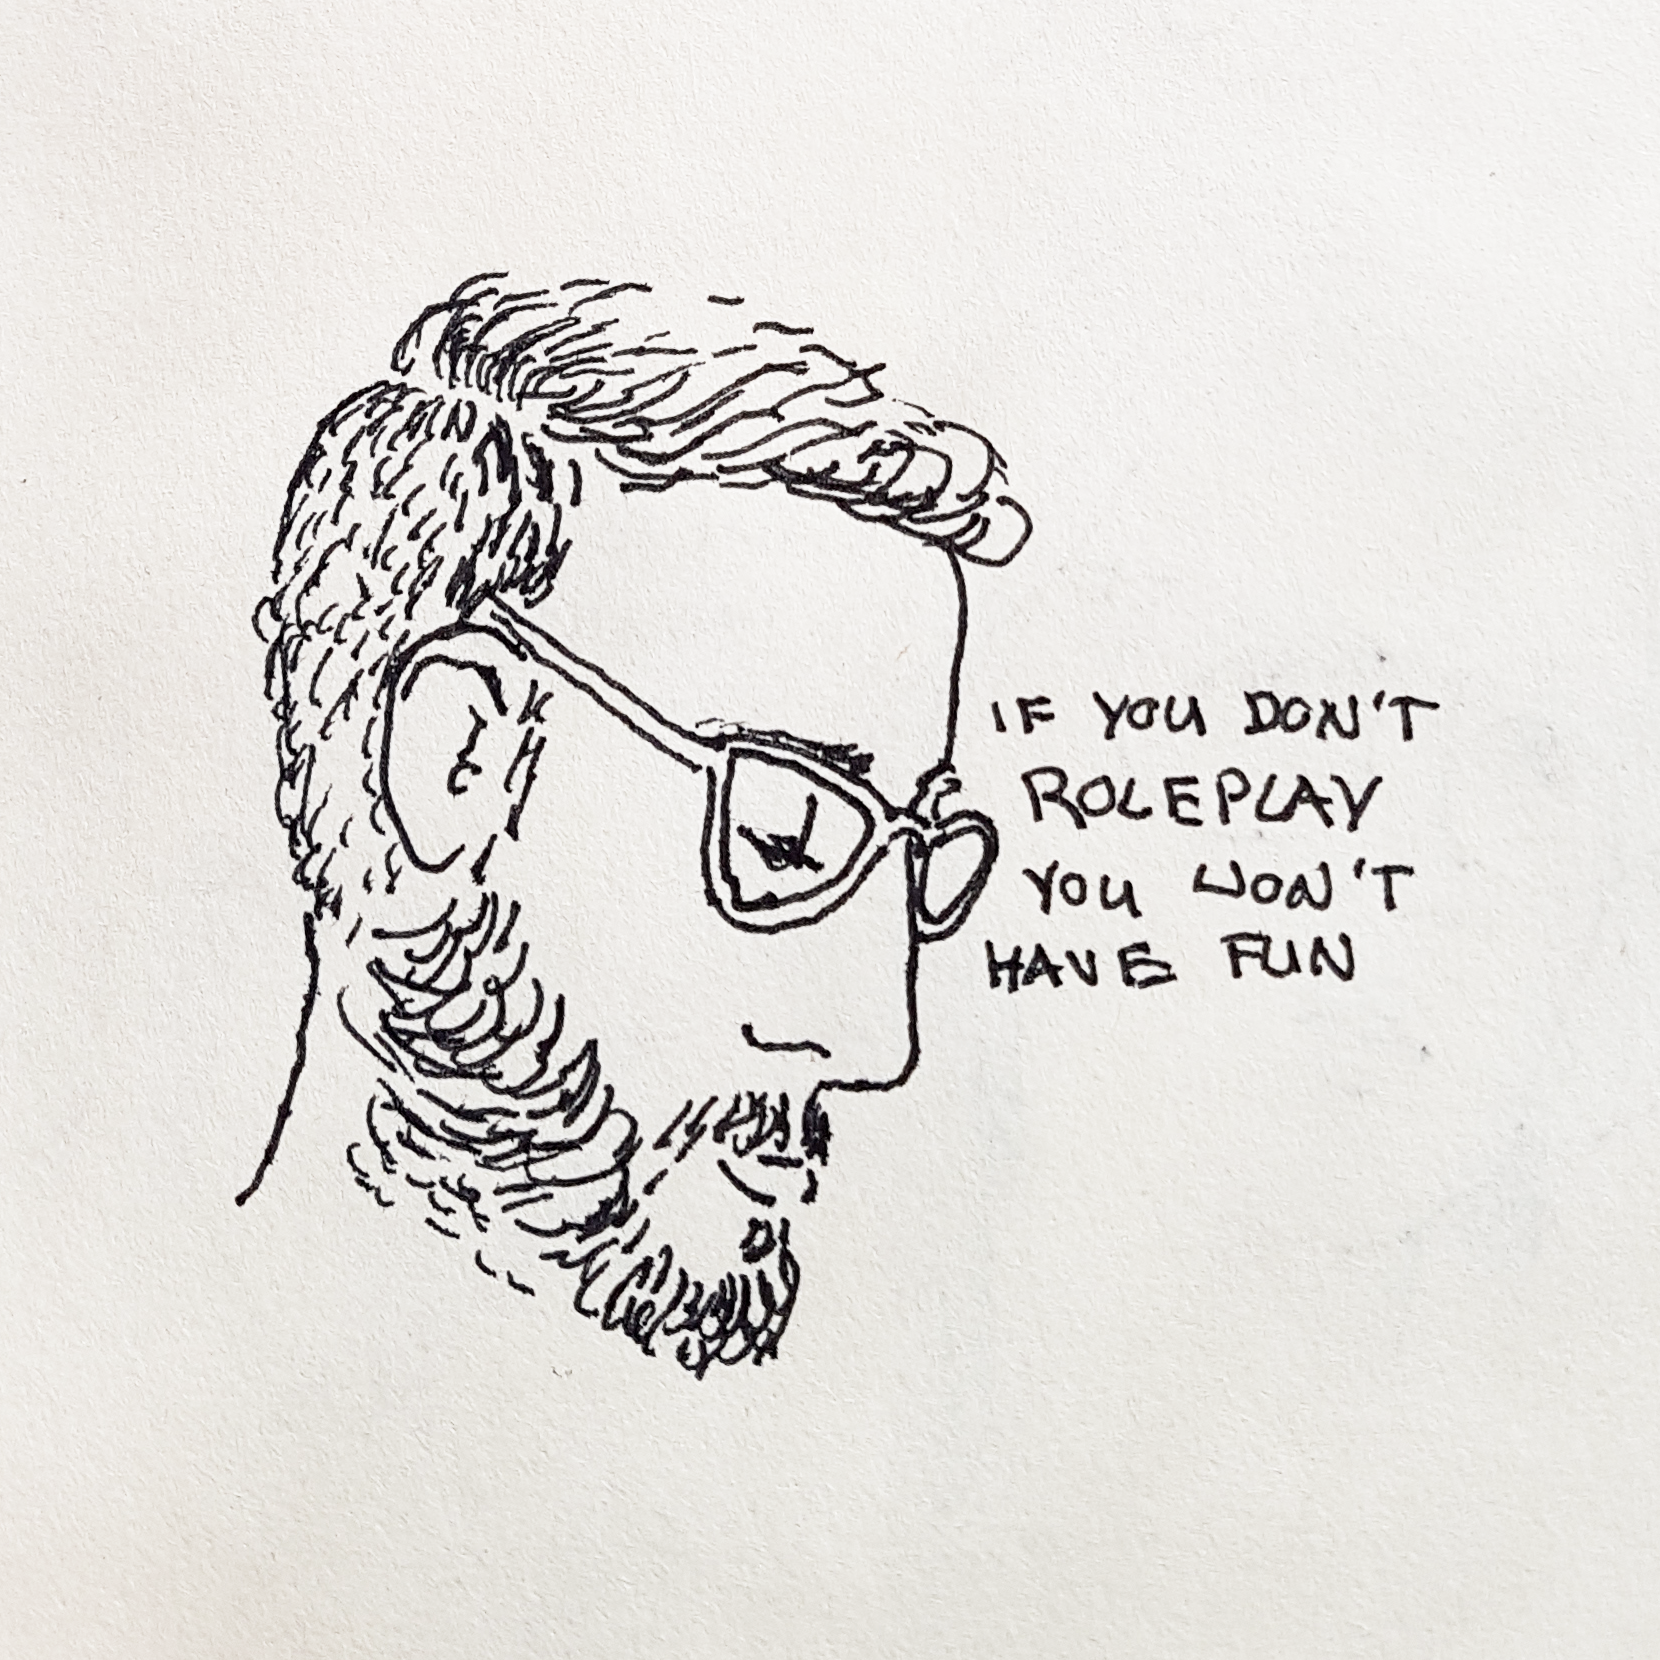 IF YOU DON'T
ROLEPLAY
YOU WON'T
HAVE FUN